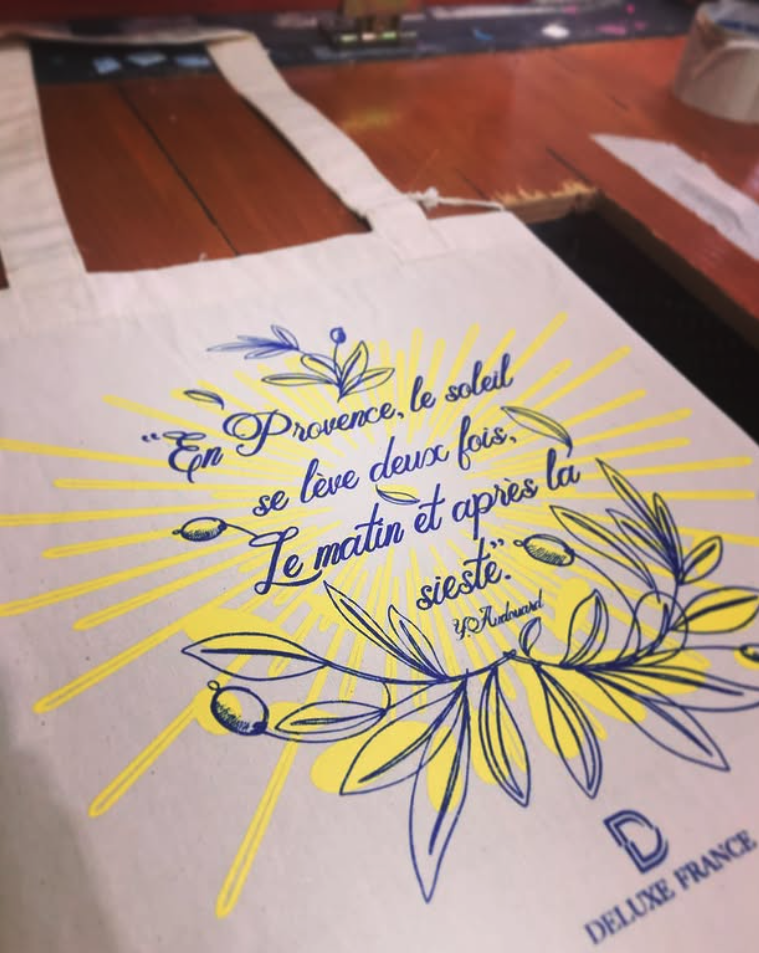 “En Provence, le soleil
se lève deux fois,
Le matin et après la
sieste”.
Y. Audouard
DELUXE FRANCE